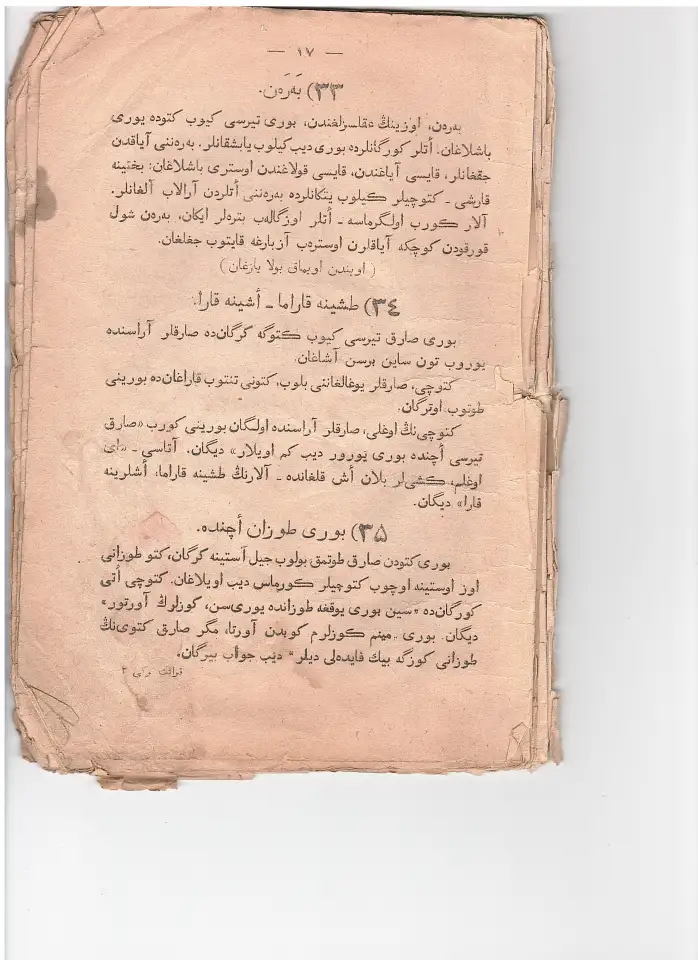 — ١٧ —
٣٣) بَەرَەن.
بەرەن، اوزینڭ عقلسزلغندن، بوری تیرسی کیوب کتوده یوری
باشلاغان. أتلر کورگانلرده بوری دیب کیلوب یابشقانلر. بەرەننی آیاقدن
جققانلر، قایسی آیاغندن، قایسی قولاغندن اوستری باشلاغان: بختینه
قارشی ـ کتوچیلر کیلوب یتکانلرده بەرەننی أتلردن آرالاب آلغانلر.
آلار کورب اولگرماسه ـ أتلر اوزگالەب بترەلر ایکان، بەرەن شول
قورقودن کوچکه آیاقارن اوسترەب آزبارغه قایتوب جغلغان.
( اویندن اویماق بولا یازغان )
٣٤) طشینه قاراما ـ أشینه قارا.
بوری صارق تیرسی کیوب کتوگه کرگان‌ده صارقلر آراسنده
یوروب تون ساین برسن آشاغان.
کتوچی، صارقلر یوغالغاننی بلوب، کتونی تنتوب قاراغان‌ده بورینی
طوتوب اوترگان.
کتوچی‌نڭ اوغلی، صارقلر آراسنده اولگان بورینی کورب «صارق
تیرسی أچنده بوری یورور دیب کم اویلار» دیگان. آتاسی ـ «ای
اوغلم، کشی‌لر بلان أش قلغانده ـ آلارنڭ طشینه قاراما، أشلرینه
قارا» دیگان.
٣٥) بوری طوزان أچنده.
بوری کتودن صارق طوتمق بولوب جیل آستینه کرگان، کتو طوزانی
اوز اوستینه اوچوب کتوچیلر کورماس دیب اویلاغان. کتوچی أتی
کورگان‌ده «سین بوری یوقغه طوزانده یوری‌سن، کوزلرڭ آورتور»
دیگان. بوری «مینم کوزلرم کوبدن آورتا، مگر صارق کتوی‌نڭ
طوزانی کوزگه بیك فایده‌لی دیلر» دیب جواب بیرگان.